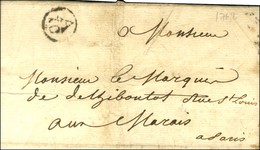 A
a Monsieur
Monsieur le Marquis
de Rue St Louis
aux Marais
a Paris